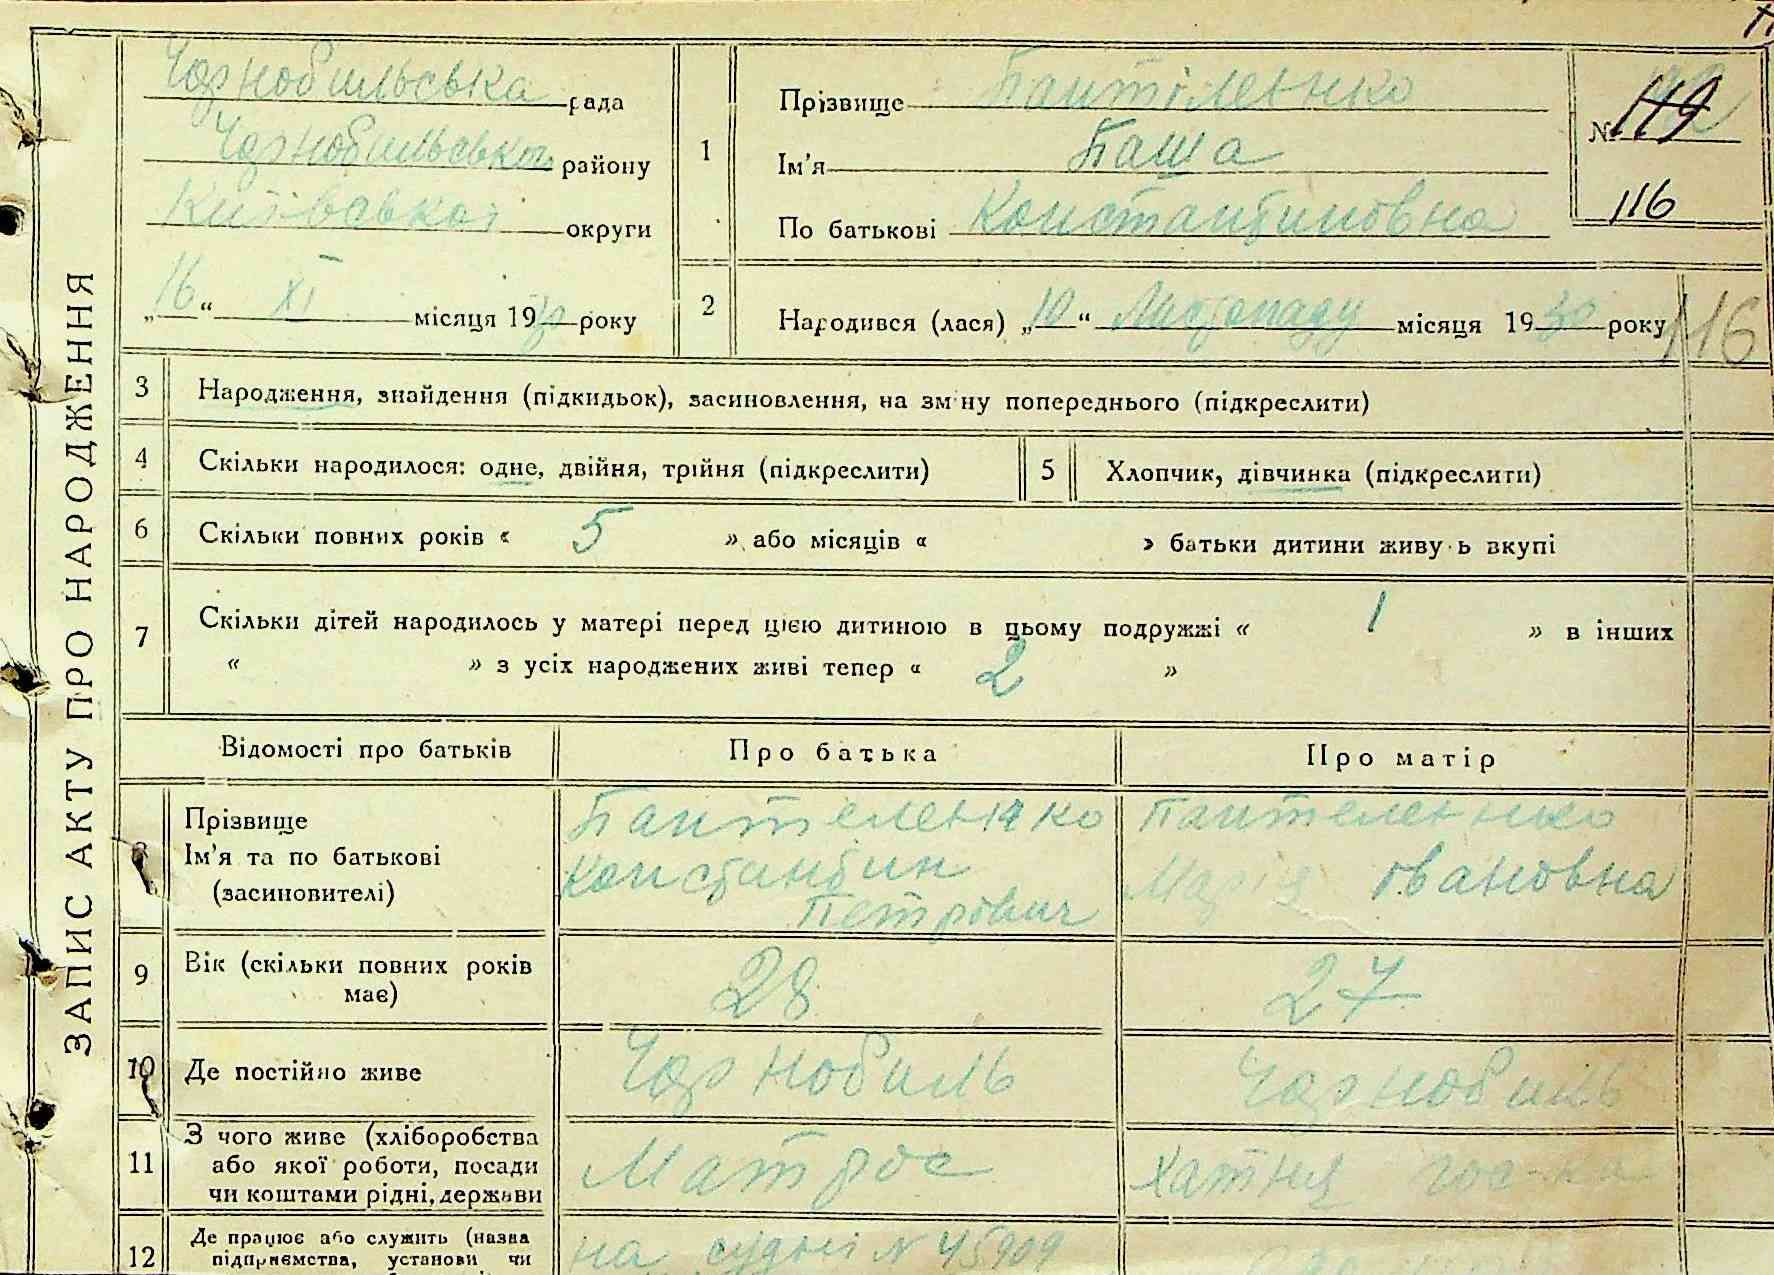 ЗАПИС АКТУ ПРО НАРОДЖЕННЯ
Чорнобильська рада
Чорнобильського району
Київської округи
„16“ XI місяця 1930 року
1
Прізвище Пантіленко
Ім'я Паша
По батькові Константиновна
№ 119
116
2
Народився (лася) „10“ Листопаду місяця 1930 року
116
3 Народження, знайдення (підкидьок), засиновлення, на зміну попереднього (підкреслити)
4 Скільки народилося: одне, двійня, трійня (підкреслити)
5 Хлопчик, дівчинка (підкреслити)
6 Скільки повних років « 5 » або місяців « » батьки дитини живуть вкупі
7 Скільки дітей народилось у матері перед цією дитиною в цьому подружжі « 1 » в інших
« » з усіх народжених живі тепер « 2 »
Відомості про батьків Про батька Про матір
8 Прізвище
Ім'я та по батькові
(засиновителі)
Пантеленко
Константин
Петрович
Пантеленко
Марія Івановна
9 Вік (скільки повних років
має)
28 27
10 Де постійно живе Чорнобиль Чорнобиль
11 З чого живе (хліборобства
або якої роботи, посади
чи коштами рідні, держави
Матрос Хатня гос-ка
12 Де працює або служить (назва
підприємства, установи чи
на судні № 45909